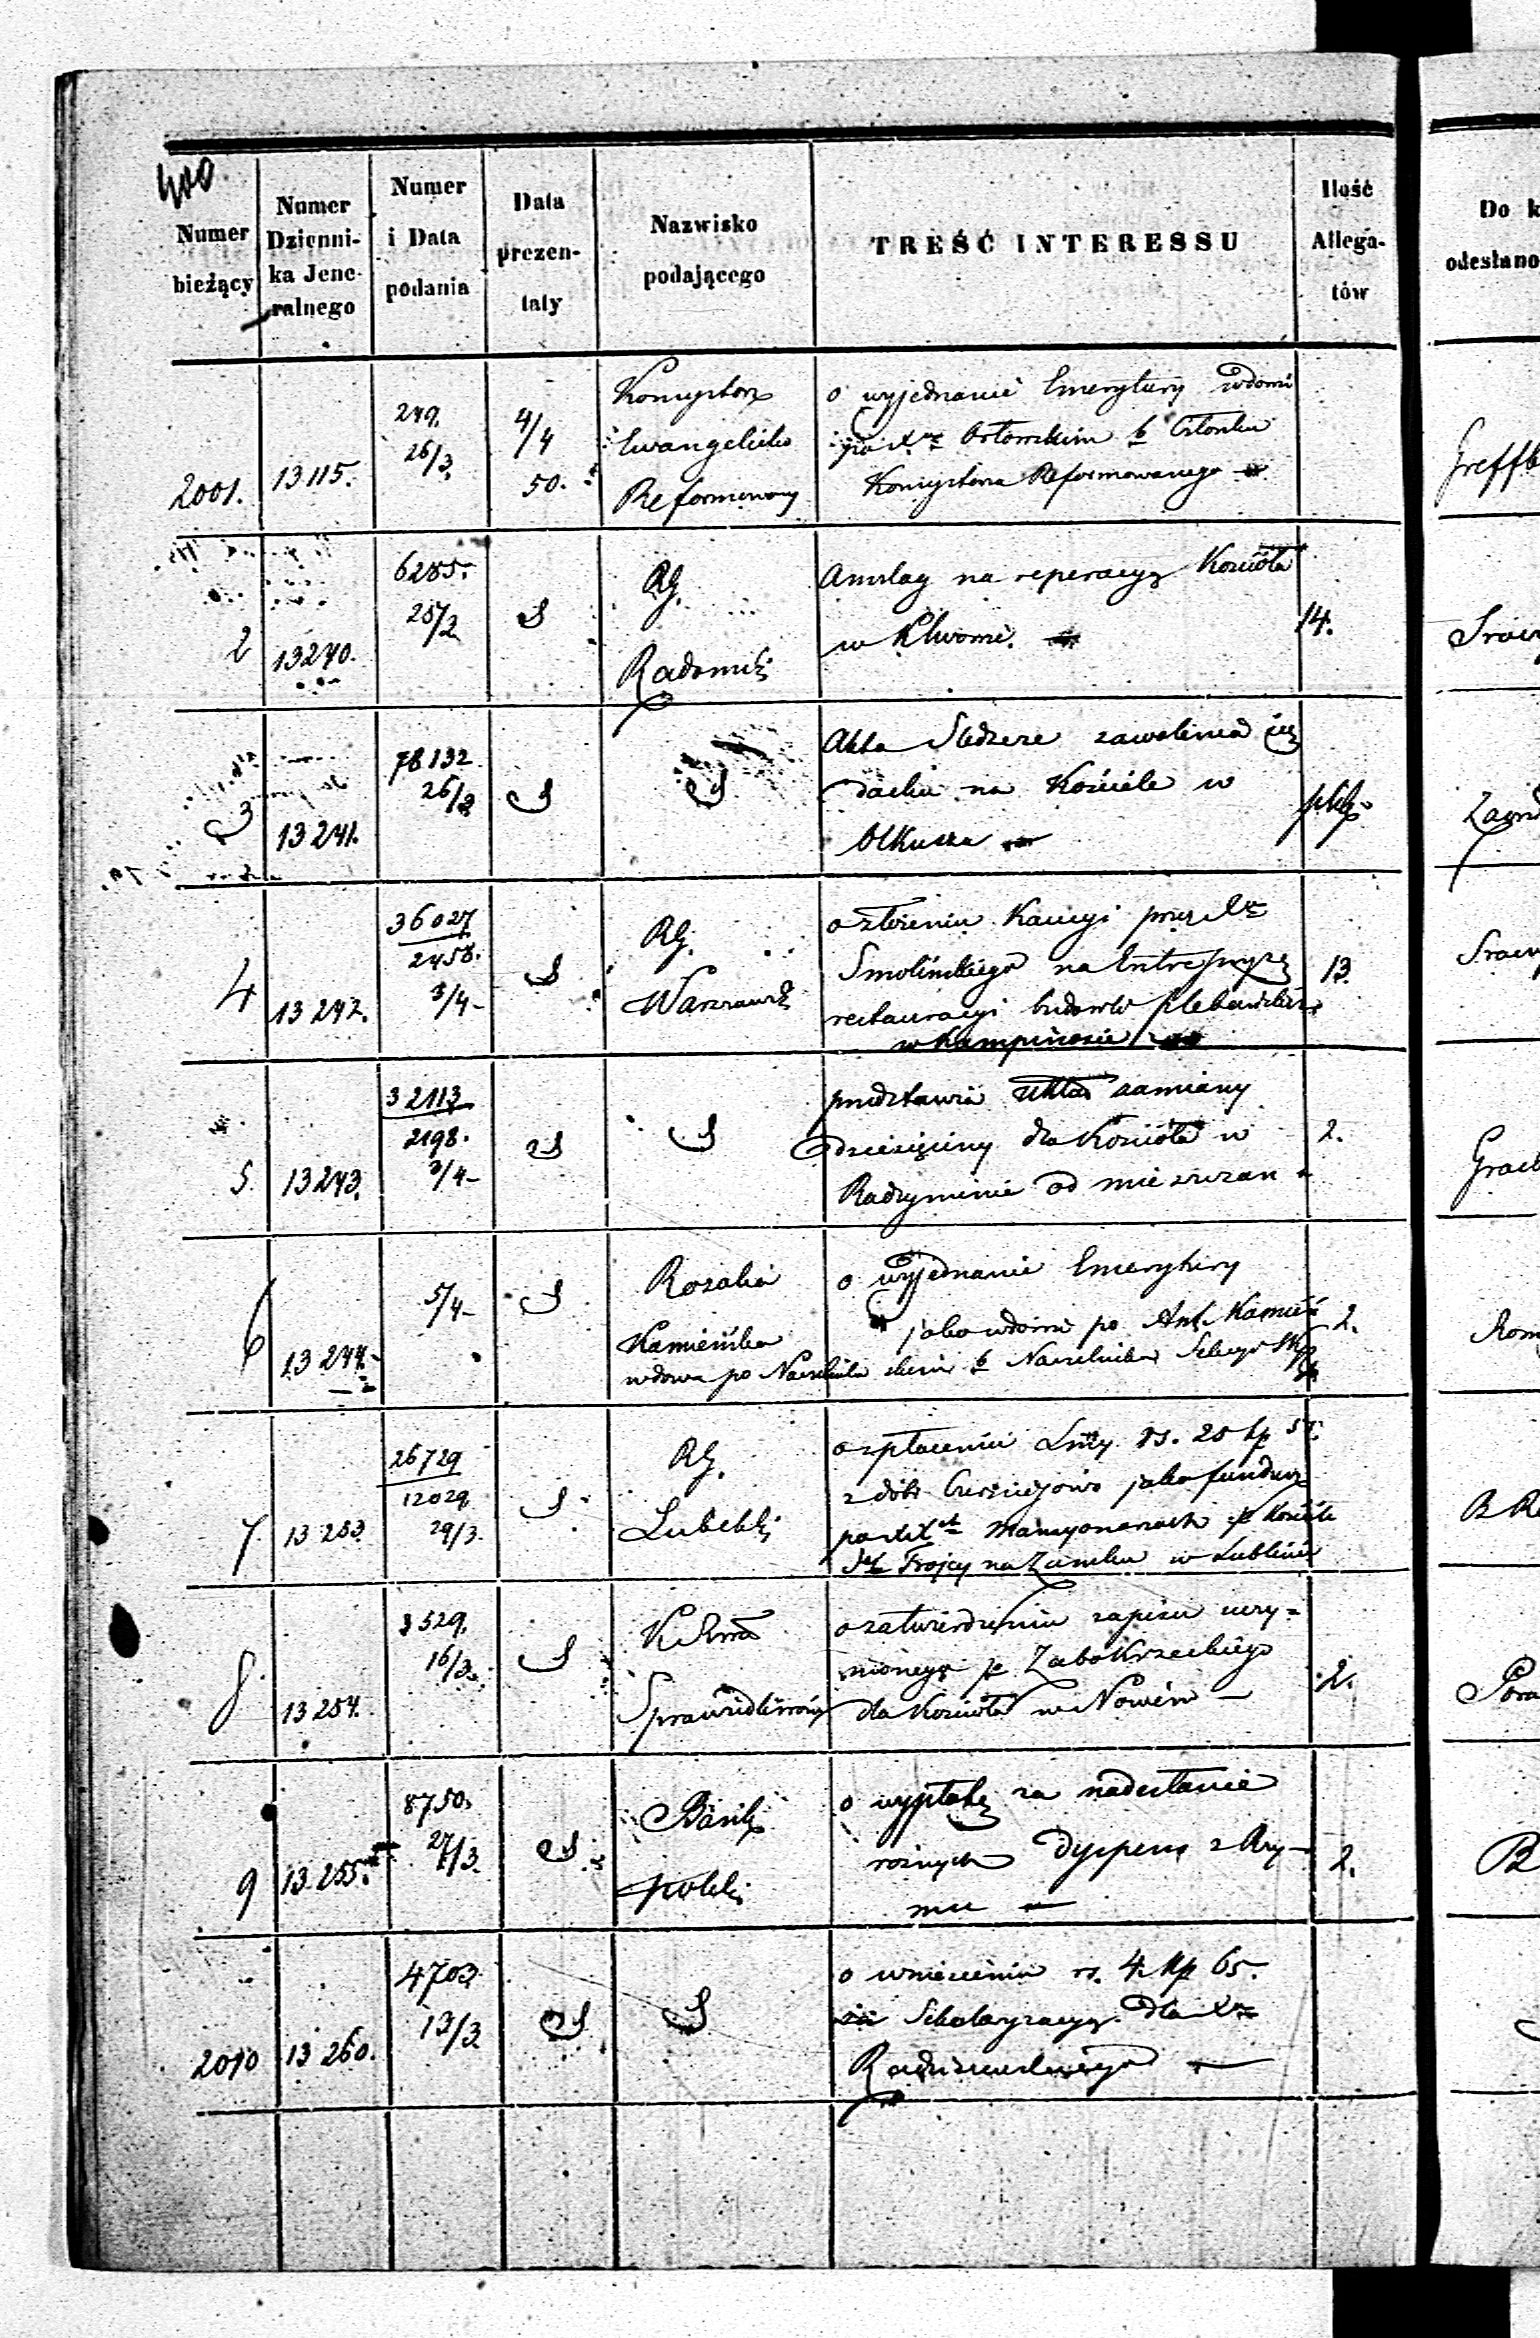 400
Numer bieżący
Numer Dzienni- ka Jene- ralnego
Numer i Data podania
Data prezen- taty
Nazwisko podającego
TREŚĆ INTERESSU
Ilość Allega- tów
Do k
odesłano
2001. 13115. 249. 26/3 4/4 50.
Konsystorz
Ewangelicko
Reformowany
o wyjednanie Emerytury wdowie
po
Członku
Konsystorza Reformowanego
2 13240. 6285. 25/2
RG.
Radomski
Anszlag na reperacyą Kościoła
w Klwowie.
14.
3 13241. 78132 26/2
Akta Śledcze zawalenia się
dachu na Kościele w
Olkuszu
4 13242. 36027 2458. 3/4
RG.
Warszawski
o złożeniu Kaucyi przez
Smolińskiego na Entrepryzę
restauracyi budowli plebańskich
w Kampinosie
13.
5. 13243. 32113 2198. 3/4
przedstawia układ zamiany
dziesięciny dla Kościoła w
Radzyminie od mieszczan
2.
6 13244. 5/4
Rozalia
Kamieńska
wdowa po Naczelniku
o wyjednanie Emerytury
jako wdowie po Ant. Kamień
skim b Naczelniku
2.
7. 13253. 26729 12029 29/3.
RG.
Lubelski
o zpłaceniu Summy rs. 20 kp 57.
z dóbr
jako fundusz
po
Mansyonarzach
Trójcy na Zamku w Lublinie
8. 13254. 3529. 16/3.
Sprawiedliwości
o zatwierdzeniu zapisu uczy=
nionego p Zabokrzeckiego
dla Kościoła w Nowem
2.
9 13255. 8750. 27/3.
Bank
polski
o wypłatę za nadesłanie
rożnych Dyspens z Rzy-
mu
2.
2010 13260. 4703. 13/3
o wniesieniu rs. 4 kp 65.
za
dla